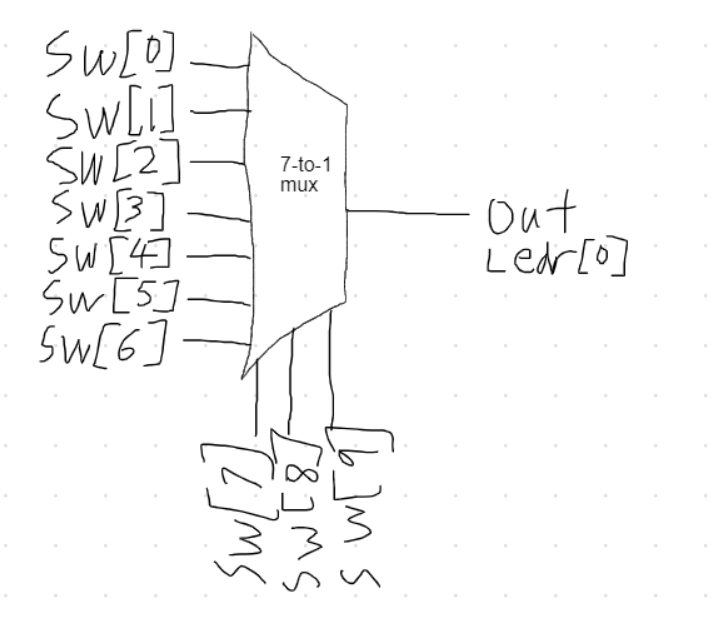 SW[0]
SW[1]
SW[2]
SW[3]
SW[4]
SW[5]
SW[6]
7-to-1
mux
Out
Ledr[0]
SW[7]
SW[8]
SW[9]